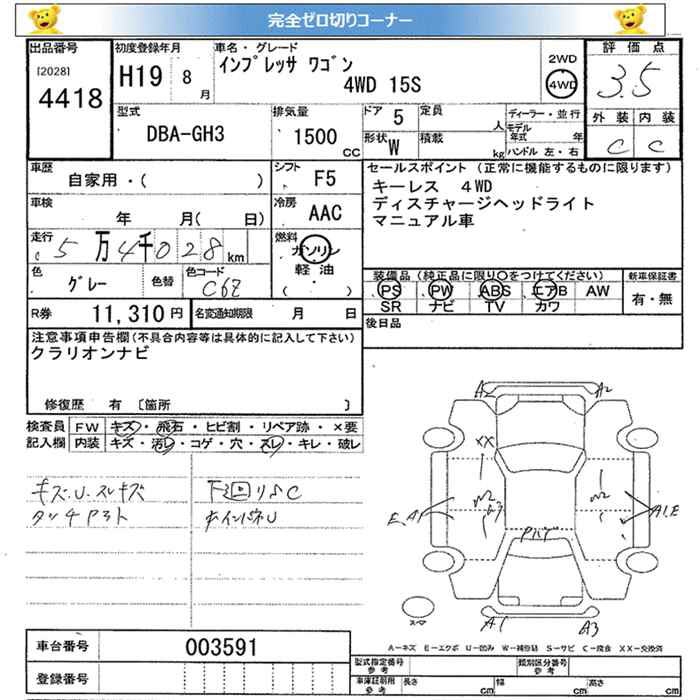 完全ゼロ切りコーナー
出品番号 [2028] 4418
初度登録年月 H19 8月
車名・グレード インプレッサ ワゴン 4WD 15S
2WD 4WD
評価点 3.5
外装 内装
C C
型式 DBA-GH3
排気量 1500 CC
ドア 5 定員 人
形状 W 積載 kg
ディーラー・並行
モデル年式 年
ハンドル 左・右
車歴 自家用・( )
シフト F5
車検 年 月( 日)
冷房 AAC
走行 5万4千028km
燃料 ガソリン 軽油 ( )
色 グレー 色替 色コード C6Z
R券 11,310円 名変通知期限 月 日
セールスポイント (正常に機能するものに限ります)
キーレス 4WD
ディスチャージヘッドライト
マニュアル車
装備品(純正品に限り○をつけてください) 新車保証書
PS PW ABS エアB AW 有・無
SR ナビ TV カワ
後日品
注意事項申告欄(不具合内容等は具体的に記入して下さい)
クラリオンナビ
修復歴 有 〔箇所 〕
検査員 FW キズ・飛石・ヒビ割・リペア跡・×要
記入欄 内装 キズ・汚レ・コゲ・穴・スレ・キレ・破レ
キズ.U.スレキズ
タッチアト
下廻りSC
ホインパネU
A2 A2
XX
E A1 A1.E
A1 A3
スペア
A=キズ E=エクボ U=凹み W=補修跡 S=サビ C=腐食 XX=交換済
車台番号 003591
登録番号
型式指定番号 参考 類別区分番号 参考
車庫証明用 参考 長さ cm 幅 cm 高さ cm